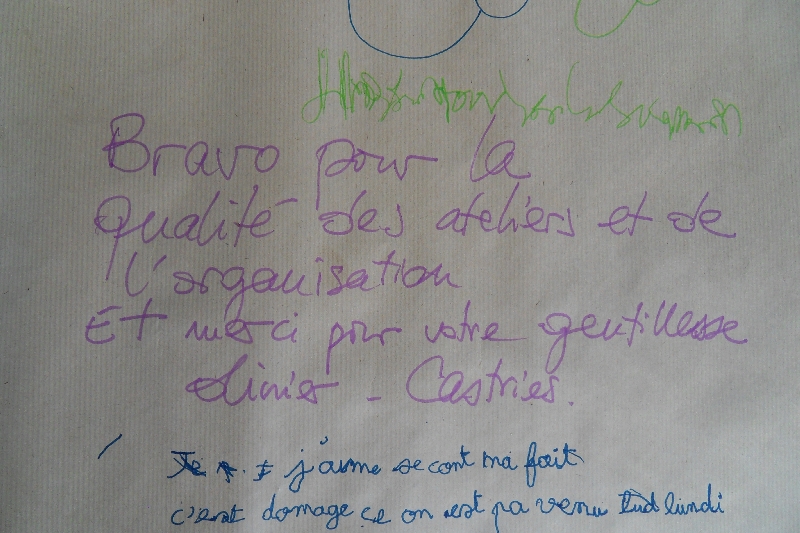 Bravo pour la
qualité des ateliers et de
l'organisation
Et merci pour votre gentillesse
Olivier - Castries.
j'aime se cont ma fait
c'est domage ce on est pa venu lundi